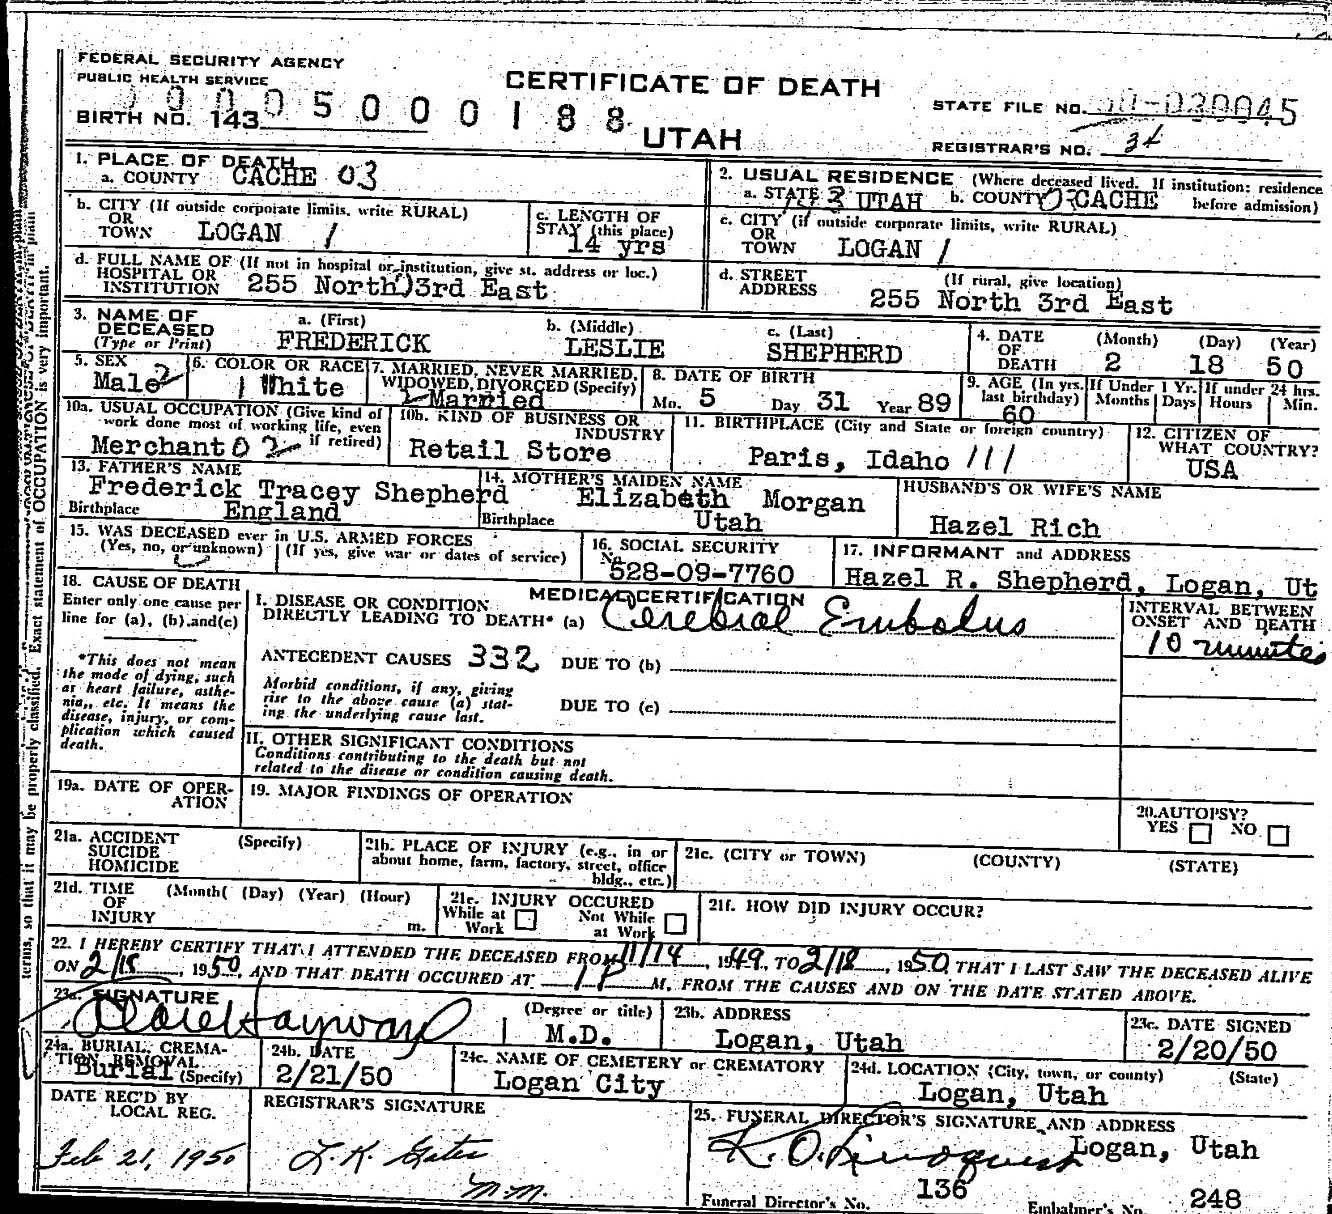 FEDERAL SECURITY AGENCY
PUBLIC HEALTH SERVICE
CERTIFICATE OF DEATH
STATE FILE NO.
BIRTH NO. 143 0005000188
UTAH
REGISTRAR'S NO. 34
1. PLACE OF DEATH
a. COUNTY CACHE 03
2. USUAL RESIDENCE (Where deceased lived. If institution: residence before admission)
a. STATE UTAH b. COUNTY CACHE
b. CITY (If outside corporate limits, write RURAL)
OR
TOWN LOGAN 1
c. LENGTH OF
STAY (this place)
14 yrs
c. CITY (if outside corporate limits, write RURAL)
OR
TOWN LOGAN 1
d. FULL NAME OF (If not in hospital or institution, give st. address or loc.)
HOSPITAL OR
INSTITUTION 255 North 3rd East
d. STREET (If rural, give location)
ADDRESS 255 North 3rd East
3. NAME OF
DECEASED
(Type or Print)
a. (First)
FREDERICK
b. (Middle)
LESLIE
c. (Last)
SHEPHERD
4. DATE
OF
DEATH
(Month) (Day) (Year)
2 18 50
5. SEX
Male 2
6. COLOR OR RACE
1 White
7. MARRIED, NEVER MARRIED,
WIDOWED, DIVORCED (Specify)
2 Married
8. DATE OF BIRTH
Mo. 5 Day 31 Year 89
9. AGE (In yrs.
last birthday)
60
If Under 1 Yr.
Months Days
If under 24 hrs.
Hours Min.
10a. USUAL OCCUPATION (Give kind of
work done most of working life, even
if retired)
Merchant 02
10b. KIND OF BUSINESS OR
INDUSTRY
Retail Store
11. BIRTHPLACE (City and State or foreign country)
Paris, Idaho 111
12. CITIZEN OF
WHAT COUNTRY?
USA
13. FATHER'S NAME
Frederick Tracey Shepherd
Birthplace England
14. MOTHER'S MAIDEN NAME
Elizabeth Morgan
Birthplace Utah
HUSBAND'S OR WIFE'S NAME
Hazel Rich
15. WAS DECEASED ever in U.S. ARMED FORCES
(Yes, no, or unknown) (If yes, give war or dates of service)
16. SOCIAL SECURITY
No.
528-09-7760
17. INFORMANT and ADDRESS
Hazel R. Shepherd, Logan, Ut
18. CAUSE OF DEATH
Enter only one cause per
line for (a), (b) and (c)
*This does not mean
the mode of dying, such
as heart failure, asthe-
nia,, etc. It means the
disease, injury, or com-
plication which caused
death.
MEDICAL CERTIFICATION
I. DISEASE OR CONDITION
DIRECTLY LEADING TO DEATH* (a) Cerebral Embolus
INTERVAL BETWEEN
ONSET AND DEATH
10 minutes
ANTECEDENT CAUSES 332 DUE TO (b)
Morbid conditions, if any, giving
rise to the above cause (a) stat-
ing the underlying cause last.
DUE TO (c)
II. OTHER SIGNIFICANT CONDITIONS
Conditions contributing to the death but not
related to the disease or condition causing death.
19a. DATE OF OPER-
ATION
19. MAJOR FINDINGS OF OPERATION
20. AUTOPSY?
YES NO
21a. ACCIDENT
SUICIDE
HOMICIDE
(Specify)
21b. PLACE OF INJURY (e.g., in or
about home, farm, factory, street, office
bldg., etc.)
21c. (CITY or TOWN) (COUNTY) (STATE)
21d. TIME
OF
INJURY
(Month( (Day) (Year) (Hour)
m.
21e. INJURY OCCURED
While at
Work
Not While
at Work
21f. HOW DID INJURY OCCUR?
22. I HEREBY CERTIFY THAT I ATTENDED THE DECEASED FROM 11/14, 1949, TO 2/18, 1950, THAT I LAST SAW THE DECEASED ALIVE
ON 2/18, 1950, AND THAT DEATH OCCURED AT 1 P M, FROM THE CAUSES AND ON THE DATE STATED ABOVE.
23a. SIGNATURE
Hayward
(Degree or title)
M.D.
23b. ADDRESS
Logan, Utah
23c. DATE SIGNED
2/20/50
24a. BURIAL, CREMA-
TION, REMOVAL
Burial (Specify)
24b. DATE
2/21/50
24c. NAME OF CEMETERY or CREMATORY
Logan City
24d. LOCATION (City, town, or county) (State)
Logan, Utah
DATE REC'D BY
LOCAL REG.
Feb 21, 1950
REGISTRAR'S SIGNATURE
25. FUNERAL DIRECTOR'S SIGNATURE AND ADDRESS
K. O. Lindquist Logan, Utah
Funeral Director's No. 136
Embalmer's No. 248
terms, so that it may be properly classified. Exact statement of OCCUPATION is very important.